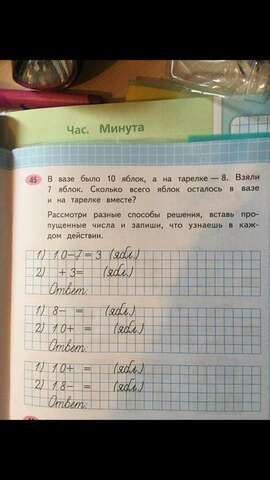 Час. Минута
45
В вазе было 10 яблок, а на тарелке — 8. Взяли
7 яблок. Сколько всего яблок осталось в вазе
и на тарелке вместе?
Рассмотри разные способы решения, вставь про-
пущенные числа и запиши, что узнаешь в каж-
дом действии.
1) 10−7=3 (ябл.)
2) +3= (ябл.)
Ответ:
1) 8− = (ябл.)
2) 10+ = (ябл.)
Ответ:
1) 10+ = (ябл.)
2) 18− = (ябл.)
Ответ: